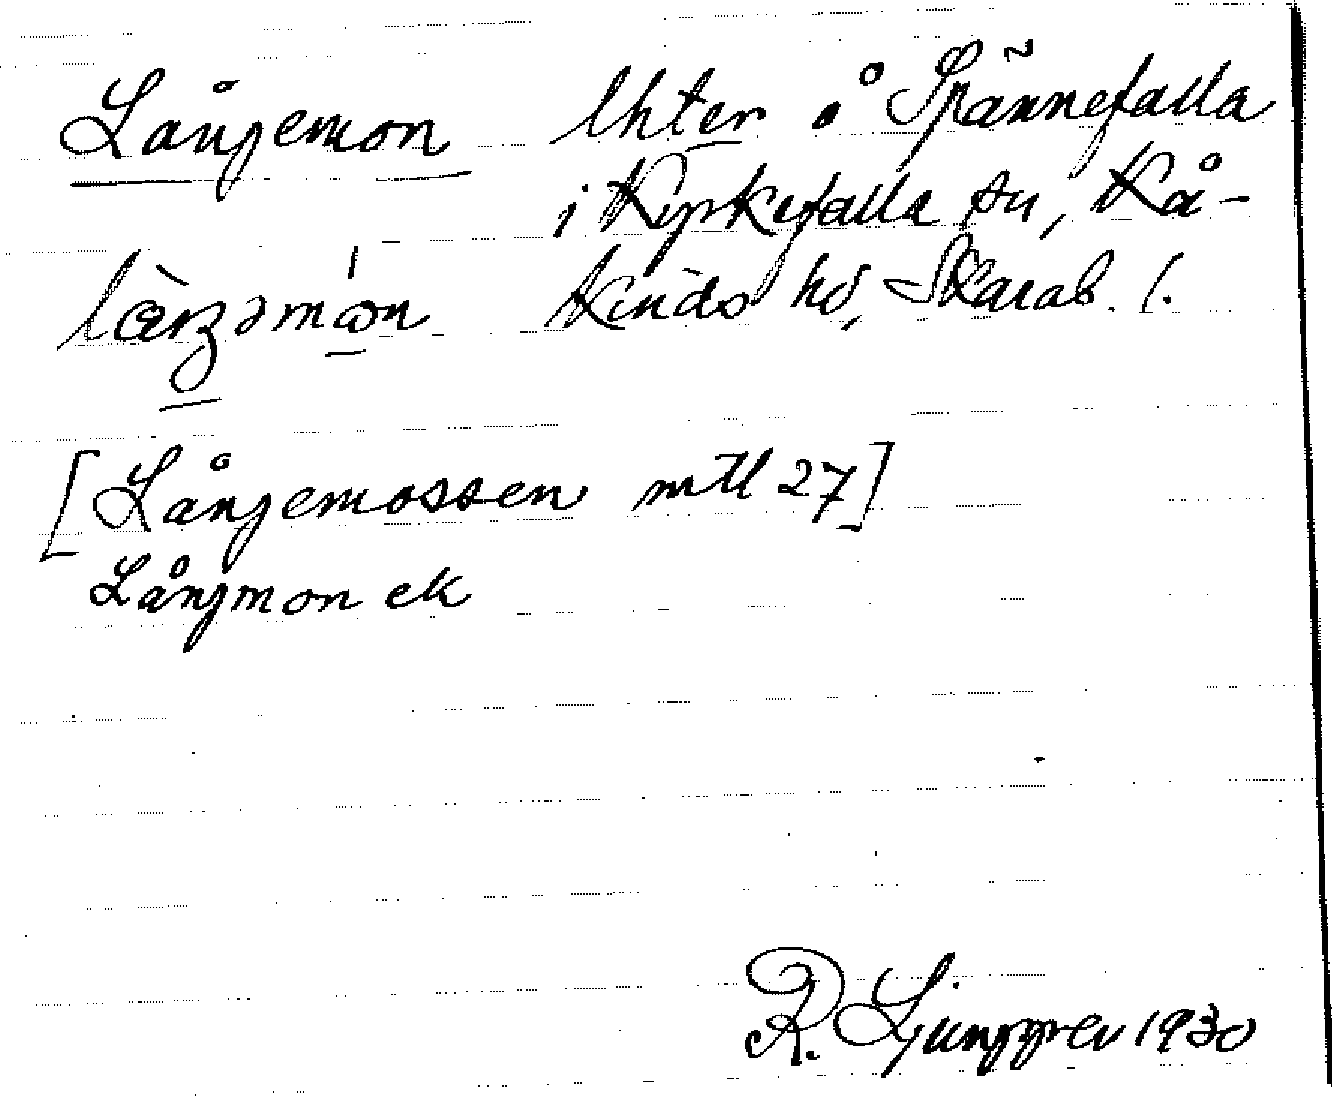 Långemon lhten å Spännefalla
i Kyrkefalla sn, Kå-
Kinds hd, Skarab. l.
[Långemossen mtl 27]
Långmon ek
R. Ljunggren 1930